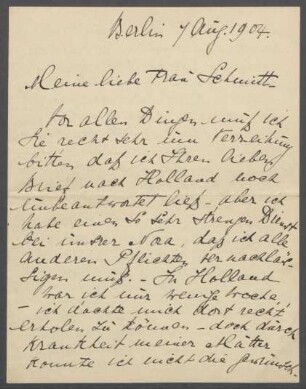 Berlin 7 Aug. 1904.
Meine liebe Frau Schmitt
Vor allen Dingen muß ich
Sie recht sehr um Verzeihung
bitten daß ich Ihren lieben
Brief nach Holland noch
unbeantwortet ließ – aber ich
habe einen so sehr strengen Dienst
bei unsrer Noa, daß ich alle
anderen Pflichten vernachläs-
sigen muß. – In Holland
war ich nur wenige Woche,
– ich dachte mich dort recht
erholen zu können – doch durch
Krankheit meiner Mutter
konnte ich nicht die gewünsch-